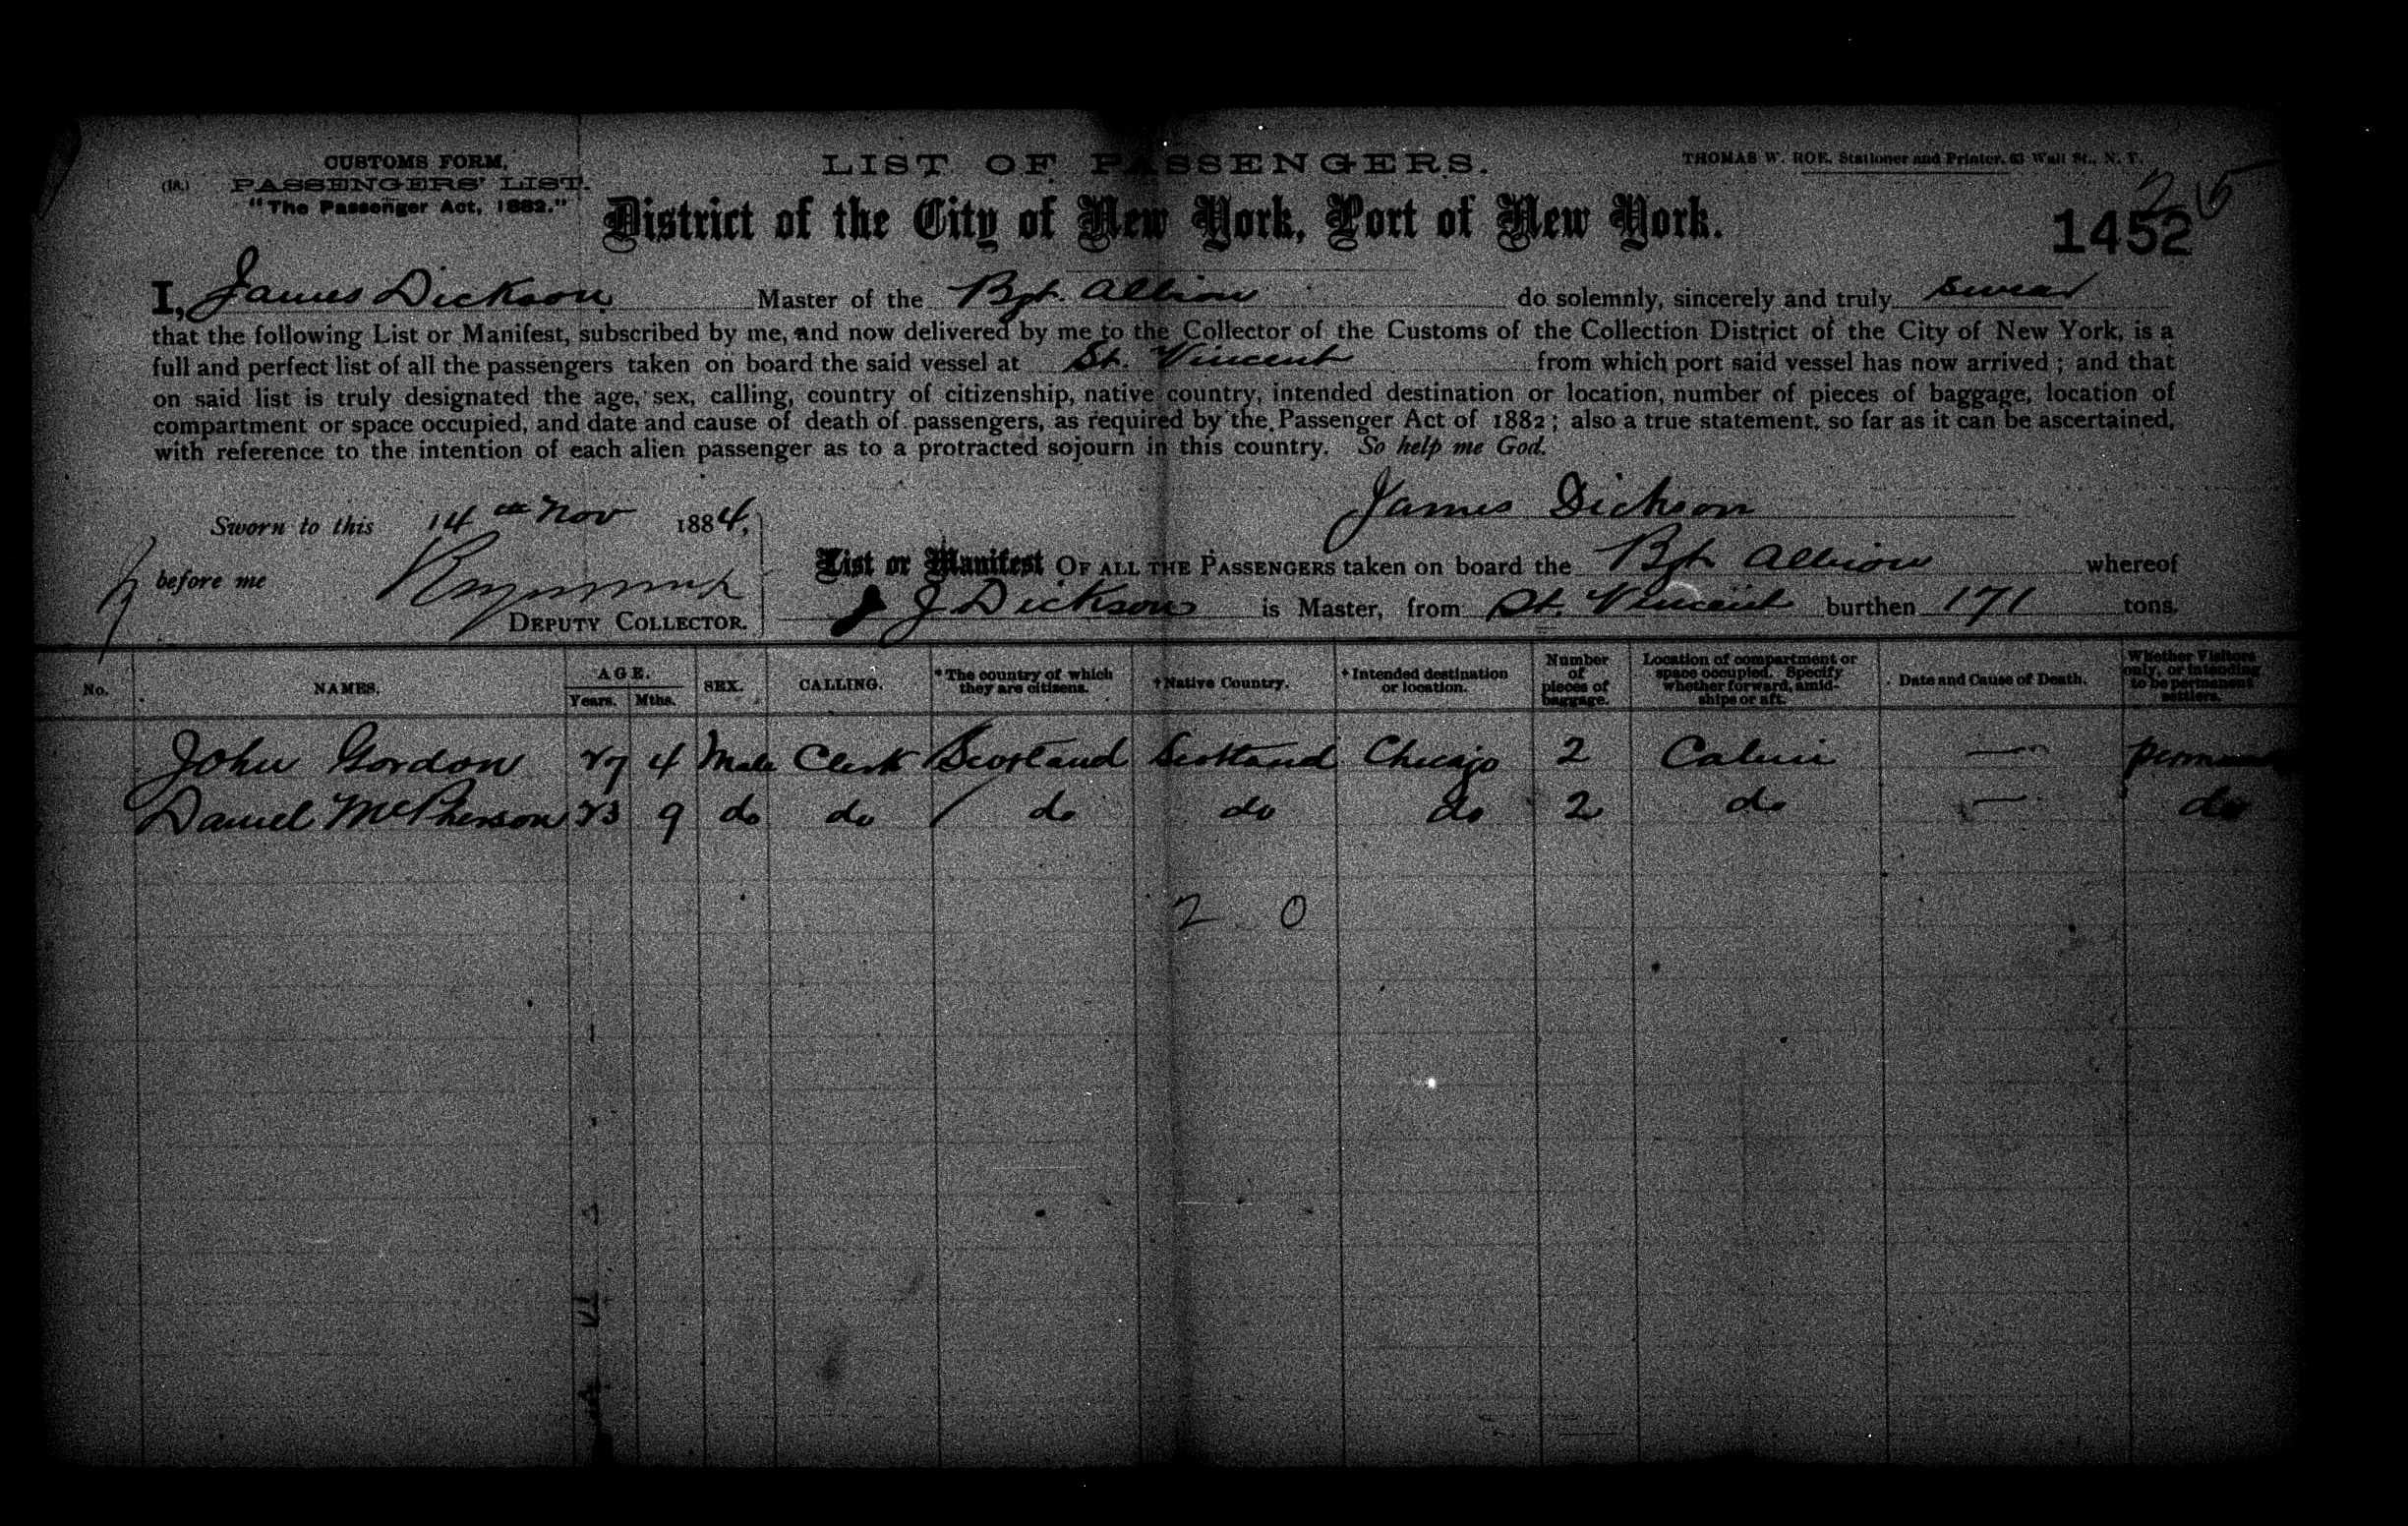 CUSTOMS FORM.
(18.) PASSENGERS' LIST.
"The Passenger Act, 1882."
LIST OF PASSENGERS.
THOMAS W. ROE, Stationer and Printer, 63 Wall St., N. Y.
District of the City of New York, Port of New York.
1452
I, James Dickson Master of the Bgt. Albion do solemnly, sincerely and truly swear
that the following List or Manifest, subscribed by me, and now delivered by me to the Collector of the Customs of the Collection District of the City of New York, is a
full and perfect list of all the passengers taken on board the said vessel at St. Vincent from which port said vessel has now arrived; and that
on said list is truly designated the age, sex, calling, country of citizenship, native country, intended destination or location, number of pieces of baggage, location of
compartment or space occupied, and date and cause of death of passengers, as required by the Passenger Act of 1882; also a true statement, so far as it can be ascertained,
with reference to the intention of each alien passenger as to a protracted sojourn in this country. So help me God.
James Dickson
Sworn to this 14th Nov 1884,
before me
DEPUTY COLLECTOR.
List or Manifest OF ALL THE PASSENGERS taken on board the Bgt Albion whereof
J Dickson is Master, from St. Vincent burthen 171 tons.
No. NAMES. AGE. Years. Mths. SEX. CALLING. *The country of which they are citizens. †Native Country. †Intended destination or location. Number of pieces of baggage. Location of compartment or space occupied. Specify whether forward, amidships or aft. Date and Cause of Death. Whether Visitors only, or intending to be permanent settlers.
John Gordon 27 4 Male Clerk Scotland Scotland Chicago 2 Cabin —
Daniel McPherson 23 9 do do / do do do 2 do — do
2 0